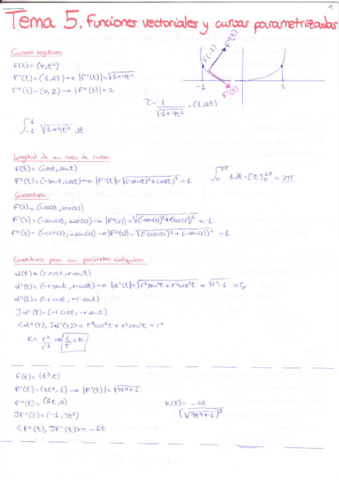 1
Tema 5. Funciones vectoriales y curvas parametrizadas
Curvas regulares
F(t) = (t, t²)
F'(t) = (1, 2t) → |F'(t)| = √1+4t²
F''(t) = (0, 2) → |F''(t)| = 2
F'(t)
F'(-1)
F''(t)
-1
1
τ = 1/√1+4t² · (1, 2t)
∫₋₁¹ √1+4t² dt
Longitud de un arco de curva
F(t) = (cost, sent)
F'(t) = (-sent, cost) → |F'(t)| = √(-sent)²+(cost)² = 1
∫₀^2π 1 dt = [t]₀^2π = 2π
Curvatura
F(s) = (cos(s), sen(s))
F'(s) = (-sen(s), cos(s)) → |F'(s)| = √(-sen(s))²+(cos(s))² = 1
F''(s) = (-cos(s), -sen(s)) → |F''(s)| = √(-cos(s))²+(-sen(s))² = 1
Curvatura para un parámetro cualquiera
α(t) = (r·cost, r·sent)
α'(t) = (-r·sent, r·cost) → |α'(t)| = √r²sen²t+r²cos²t = √r²·1 = r
α''(t) = (-r·cost, -r·sent)
Jα'(t) = (-r·cost, -r·sent)
<α''(t), Jα'(t)> = r²cos²t + r²sen²t = r²
K = r²/r³ → 1/r = K
F(t) = (t³, t)
F'(t) = (3t², 1) → |F'(t)| = √9t⁴+1
F''(t) = (6t, 0)
JF'(t) = (-1, 3t²)
<F''(t), JF'(t)> = -6t
K(t) = -6t/(√9t⁴+1)³